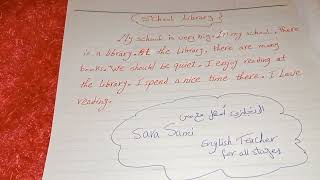 { School Library }
My school is very big. In my school, there
is a library. At the library, there are many
books. We should be quiet. I enjoy reading at
the library. I spend a nice time there. I love
reading.
الانجليزي أسهل مع مس
Sara Sami
English Teacher
for all stages